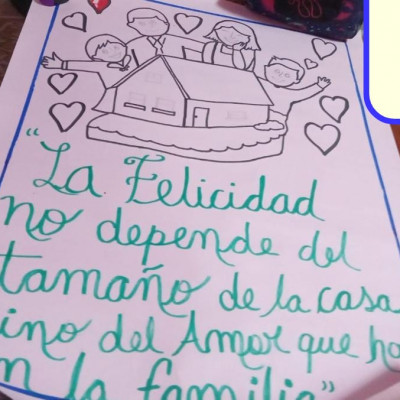 "La Felicidad
no depende del
tamaño de la casa
ino del Amor que ha
n la familia"